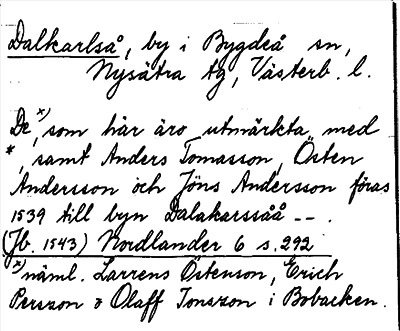 Dalkarlså, by i Bygdeå sn,
Nysätra tg, Västerb. l.
De x), som här äro utmärkta med
*, samt Anders Tomasson, Östen
Andersson och Jöns Andersson föras
1539 till byn Dalakarssåå --.
(Jb. 1543) Nordlander 6 s. 292
x) näml. Larrens Östenson, Erich
Persson o Olaff Jonsson i Bobacken.